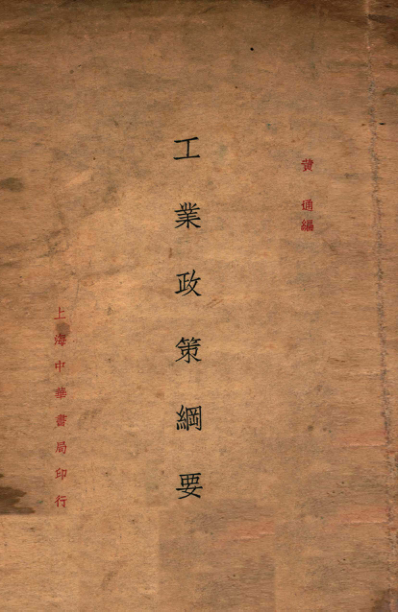 黄通編
工業政策綱要
上海中華書局印行